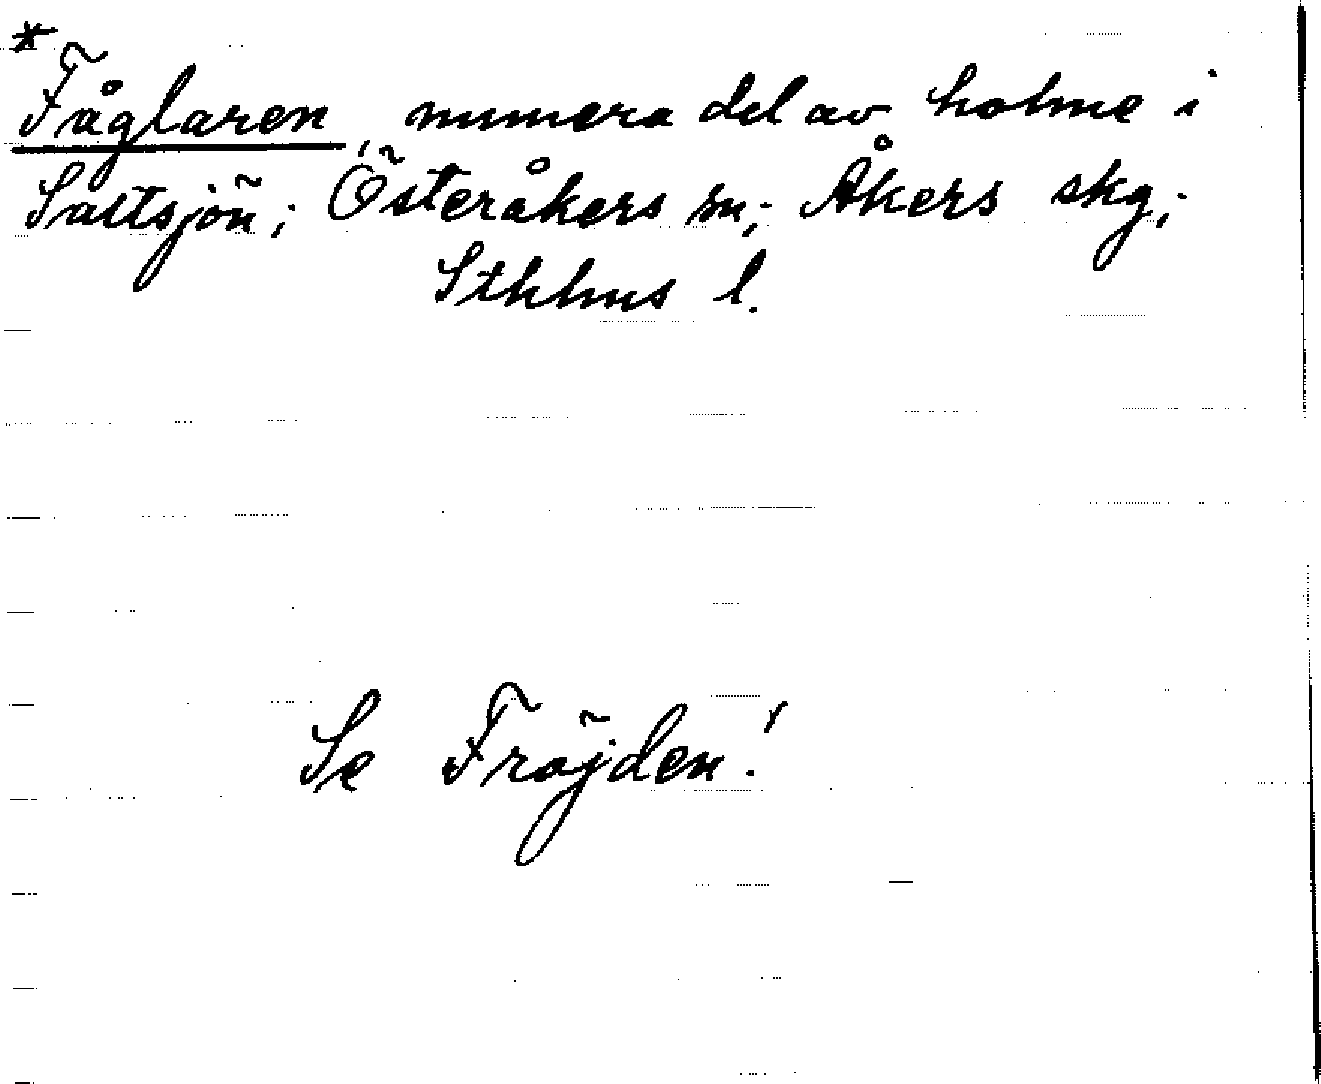 *
Fåglaren, numera del av holme i
Saltsjön; Österåkers sn; Åkers skg;
Sthlms l.
Se Fröjden!